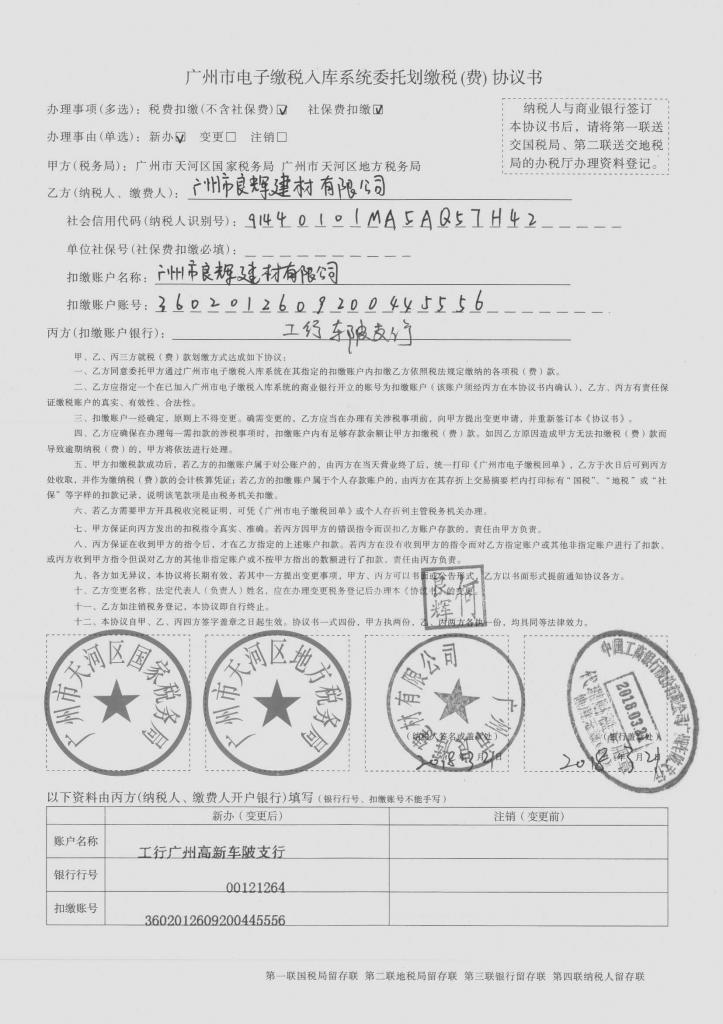 广州市电子缴税入库系统委托划缴税(费)协议书
办理事项(多选): 税费扣缴(不含社保费)☑ 社保费扣缴☑
办理事由(单选): 新办☑ 变更□ 注销□
纳税人与商业银行签订
本协议书后，请将第一联送
交国税局、第二联送交地税
局的办税厅办理资料登记。
甲方(税务局): 广州市天河区国家税务局 广州市天河区地方税务局
乙方(纳税人、缴费人): 广州市良辉建材有限公司
社会信用代码(纳税人识别号): 91440101MA5AQ57H42
单位社保号(社保费扣缴必填):
扣缴账户名称: 广州市良辉建材有限公司
扣缴账户账号: 3602012609200445556
丙方(扣缴账户银行): 工行车陂支行
甲、乙、丙三方就税（费）款划缴方式达成如下协议：
一、乙方同意委托甲方通过广州市电子缴税入库系统在其指定的扣缴账户内扣缴乙方依照税法规定缴纳的各项税（费）款。
二、乙方应指定一个在已加入广州市电子缴税入库系统的商业银行开立的账号为扣缴账户（该账户须经丙方在本协议书内确认），乙方、丙方有责任保
证缴税账户的真实、有效性、合法性。
三、扣缴账户一经确定，原则上不得变更。确需变更的，乙方应当在办理有关涉税事项前，向甲方提出变更申请，并重新签订本《协议书》。
四、乙方应确保在办理每一需扣款的涉税事项时，扣缴账户内有足够存款余额让甲方扣缴税（费）款。如因乙方原因造成甲方无法扣缴税（费）款而
导致逾期纳税（费）的，甲方将依法进行处理。
五、甲方扣缴税款成功后，若乙方的扣缴账户属于对公账户的，由丙方在当天营业终了后，统一打印《广州市电子缴税回单》，乙方于次日后可到丙方
处收取，并作为缴纳税（费）款的会计核算凭证；若乙方的扣缴账户属于个人存款账户的，由丙方在其存折上交易摘要栏内打印标有“国税”、“地税”或“社
保”等字样的扣款记录，说明该笔款项是由税务机关扣缴。
六、若乙方需要甲方开具税收完税证明，可凭《广州市电子缴税回单》或个人存折到主管税务机关办理。
七、甲方保证向丙方发出的扣税指令真实、准确。若丙方因甲方的错误指令而误扣乙方账户存款的，责任由甲方负责。
八、丙方保证在收到甲方的指令后，才在乙方指定的上述账户扣款。若丙方在没有收到甲方的指令而对乙方指定账户或其他非指定账户进行了扣款、
或丙方收到甲方指令但误对乙方的其他非指定账户或不按甲方指出的数额进行了扣款，责任由丙方负责。
九、各方如无异议，本协议将长期有效，若其中一方提出变更事项，甲方、丙方可以书面或公告形式，乙方以书面形式提前通知协议各方。
十、乙方变更名称、法定代表人（负责人）姓名，应在办理变更税务登记后办理本《协议书》的变更。
十一、乙方如注销税务登记，本协议即自行终止。
十二、本协议自甲、乙、丙四方签字盖章之日起生效。协议书一式四份，甲方执两份，乙、丙两方各执一份，均具同等法律效力。
何良辉
广州市天河区国家税务局
广州市天河区地方税务局
广州市良辉建材有限公司
(纳税人签名或盖章处)
2018年3月21日
2018.03.21
(银行盖章处)
2018年3月21日
以下资料由丙方(纳税人、缴费人开户银行)填写(银行行号、扣缴账号不能手写)
新办（变更后） 注销（变更前）
账户名称 工行广州高新车陂支行
银行行号 00121264
扣缴账号 3602012609200445556
第一联国税局留存联 第二联地税局留存联 第三联银行留存联 第四联纳税人留存联